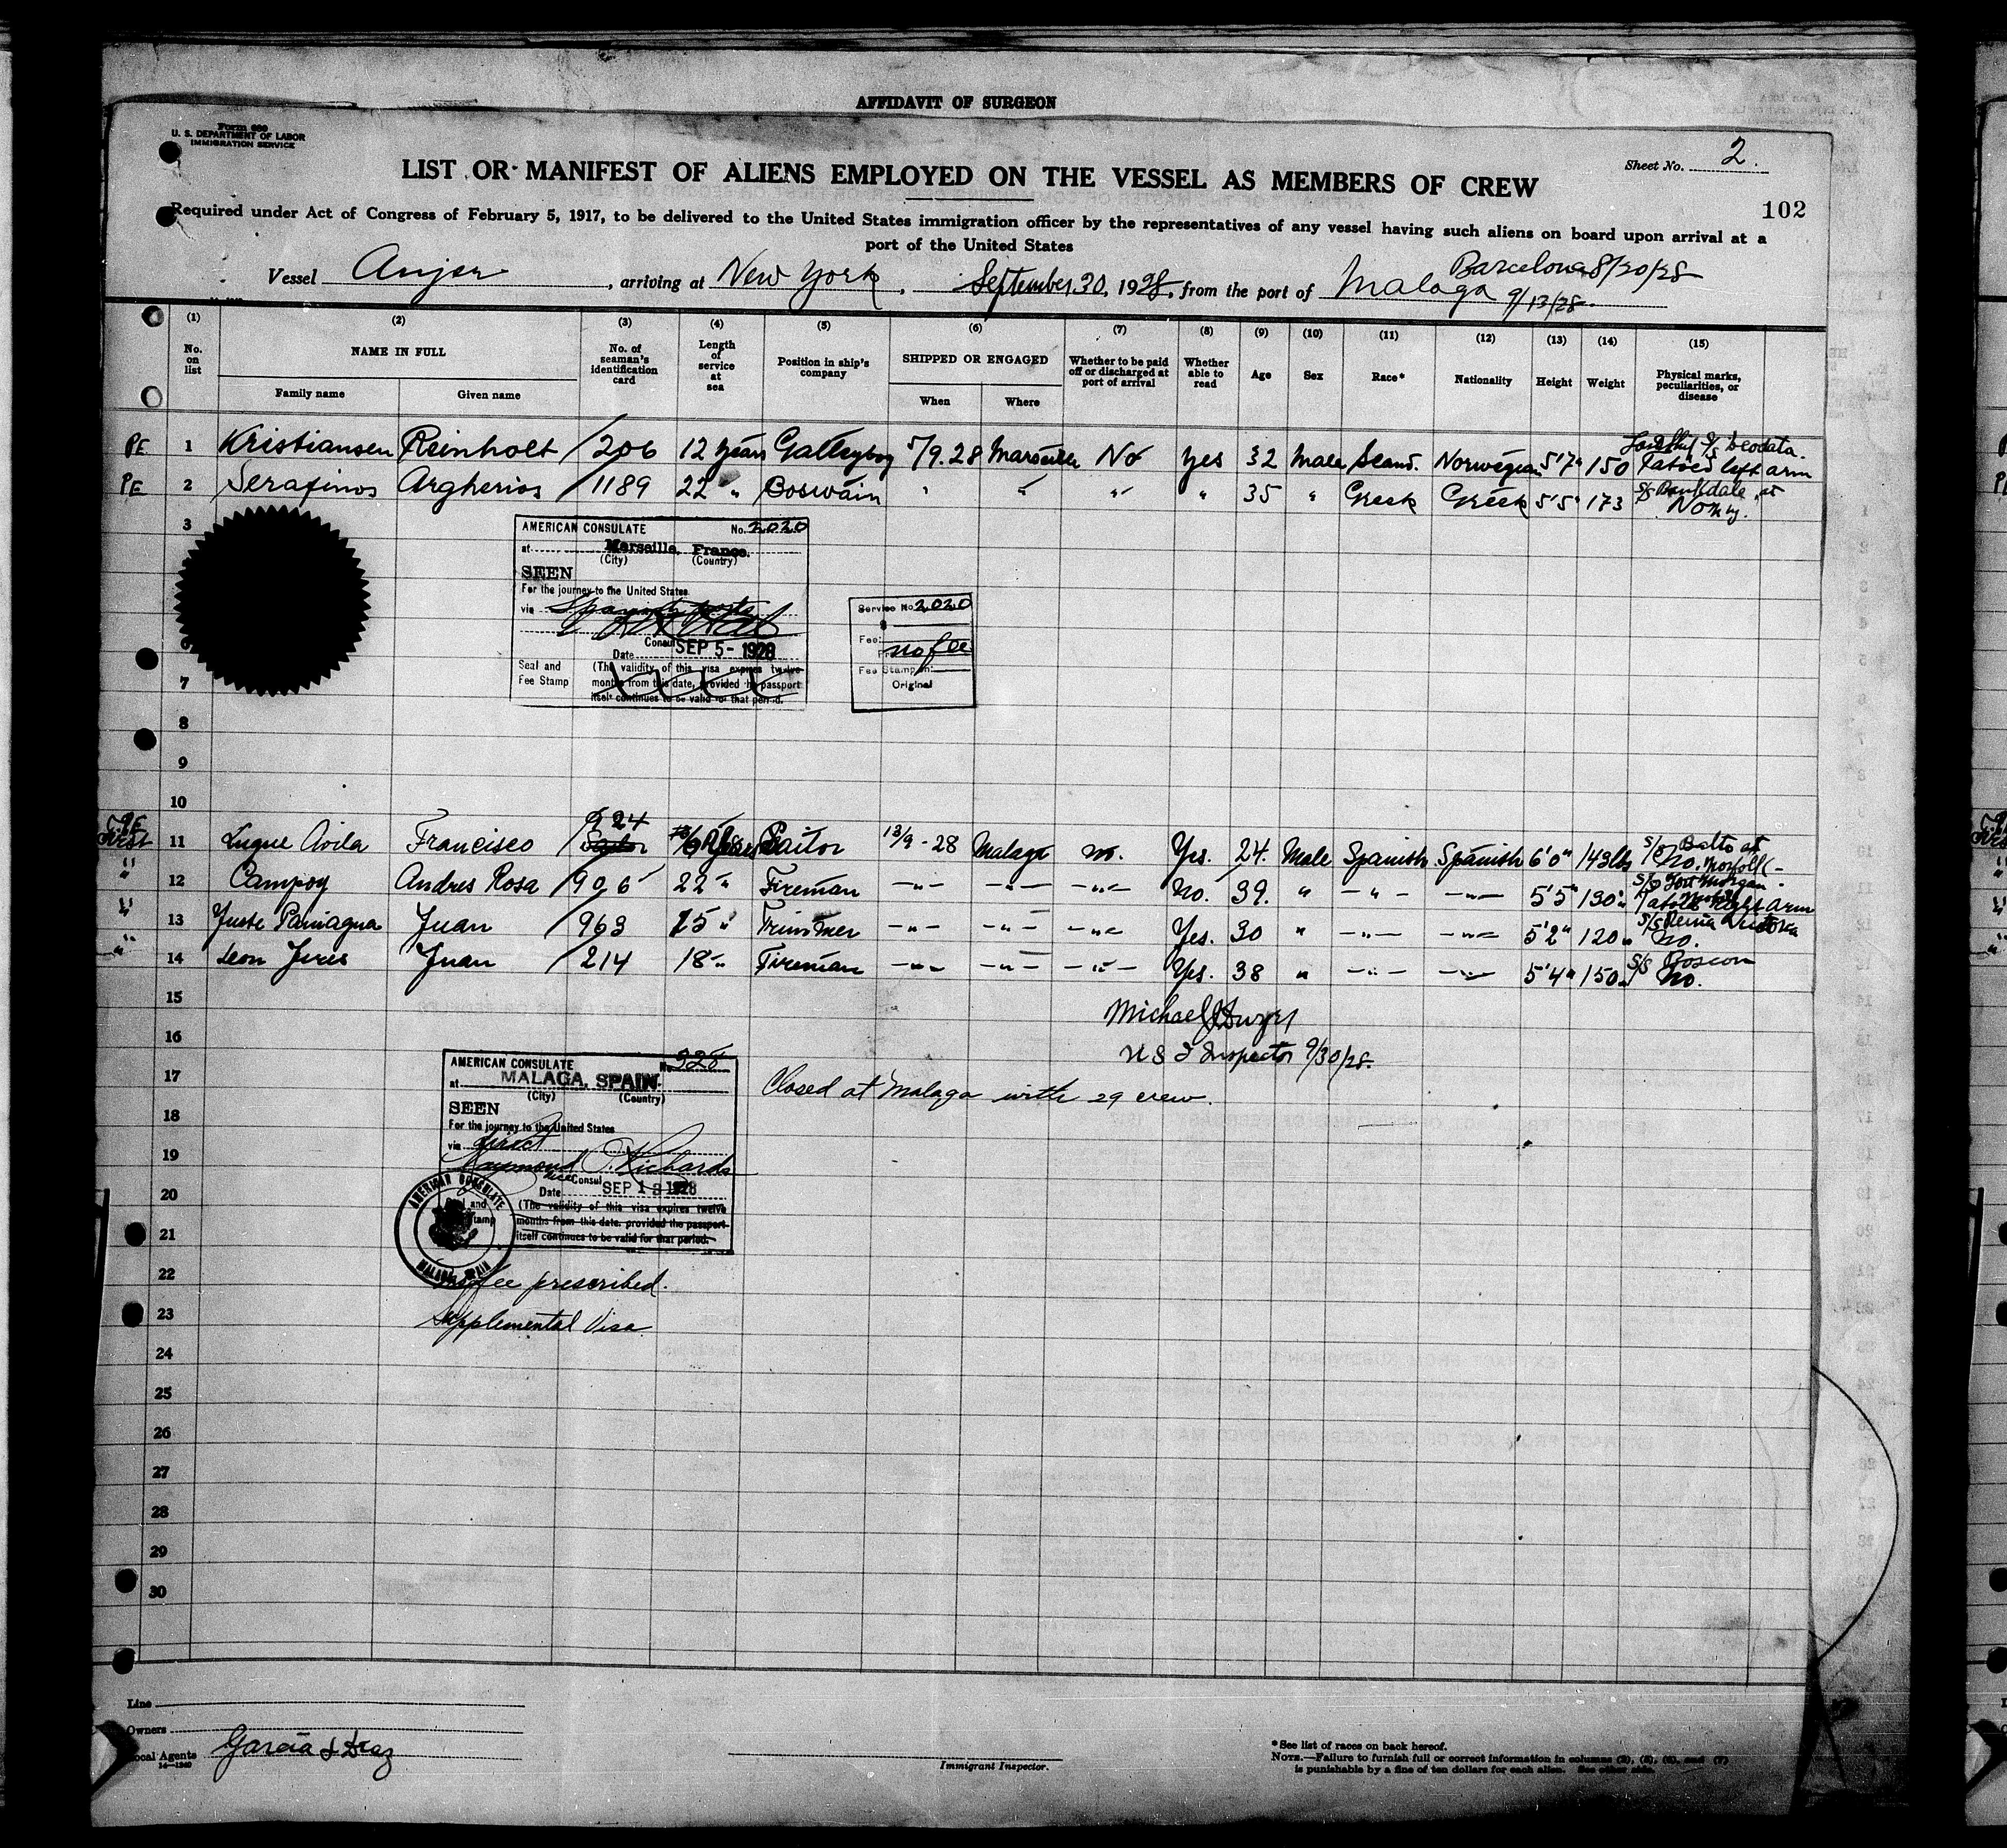 AFFIDAVIT OF SURGEON
Form 680
U. S. DEPARTMENT OF LABOR
IMMIGRATION SERVICE
Sheet No. 2.
LIST OR MANIFEST OF ALIENS EMPLOYED ON THE VESSEL AS MEMBERS OF CREW
102
Required under Act of Congress of February 5, 1917, to be delivered to the United States immigration officer by the representatives of any vessel having such aliens on board upon arrival at a
port of the United States
Barcelona 8/20/28
Vessel Anjer, arriving at New York, September 30, 1928, from the port of Malaga 9/13/28.
(1) (2) (3) (4) (5) (6) (7) (8) (9) (10) (11) (12) (13) (14) (15)
No. on list NAME IN FULL No. of seaman's identification card Length of service at sea Position in ship's company SHIPPED OR ENGAGED Whether to be paid off or discharged at port of arrival Whether able to read Age Sex Race* Nationality Height Weight Physical marks, peculiarities, or disease
Family name Given name When Where
PE 1 Kristiansen Reinholt 206 12 years Galleyboy 5/9.28 Marseille No Yes 32 Male Scand. Norwegian 5'7" 150 S/S Deodata. Tatoed left arm
PE 2 Serafinos Argherios 1189 22 " Boswain " " " " 35 " Greek Greek 5'5" 173 S/S at No
3
AMERICAN CONSULATE No. 2020
at Marseille, France.
(City) (Country)
SEEN
For the journey to the United States
via Spanish ports
Consul
Date SEP 5 - 1928
Seal and Fee Stamp
(The validity of this visa expires twelve
months from this date, provided the passport
itself continues to be valid for that period.
Service No. 2020
Fee: no fee
Fee Stamp on
Original
7
8
9
10
11 Luque Avila Francisco 924 Sailor 13/9-28 Malaga no. Yes. 24. Male Spanish Spanish 6'0" 143 lbs S/S Balto at Norfolk No.
12 Campoy Andres Rosa 906 22 " Fireman -"- -"- -"- No. 39. " -"- -"- 5'5" 130 " S/S Fort Morgan Tatoed right arm
13 Juste Paniagua Juan 963 15 " Trimmer -"- -"- -"- Yes. 30 " -"- -"- 5'2" 120 " S/S No.
14 Leon Jeres Juan 214 18 " Fireman -"- -"- -"- Yes. 38 " -"- -"- 5'4" 150 " S/S No.
15
Michael J
16
U S I Inspector 9/30/28.
17
Closed at Malaga with 29 crew.
AMERICAN CONSULATE No. 328
at MALAGA, SPAIN.
(City) (Country)
SEEN
For the journey to the United States
via direct
Raymond O. Richards
Vice Consul
Date SEP 13 1928
(The validity of this visa expires twelve
months from this date, provided the passport
itself continues to be valid for that period.
AMERICAN CONSULATE
MALAGA, SPAIN
18
19
20
21
22
No fee prescribed.
23
Supplemental Visa.
24
25
26
27
28
29
30
Line
Owners
Local Agents Garcia & Diaz
14—1240
Immigrant Inspector.
*See list of races on back hereof.
NOTE.—Failure to furnish full or correct information in columns (2), (5), (6), and (7)
is punishable by a fine of ten dollars for each alien. See other side.